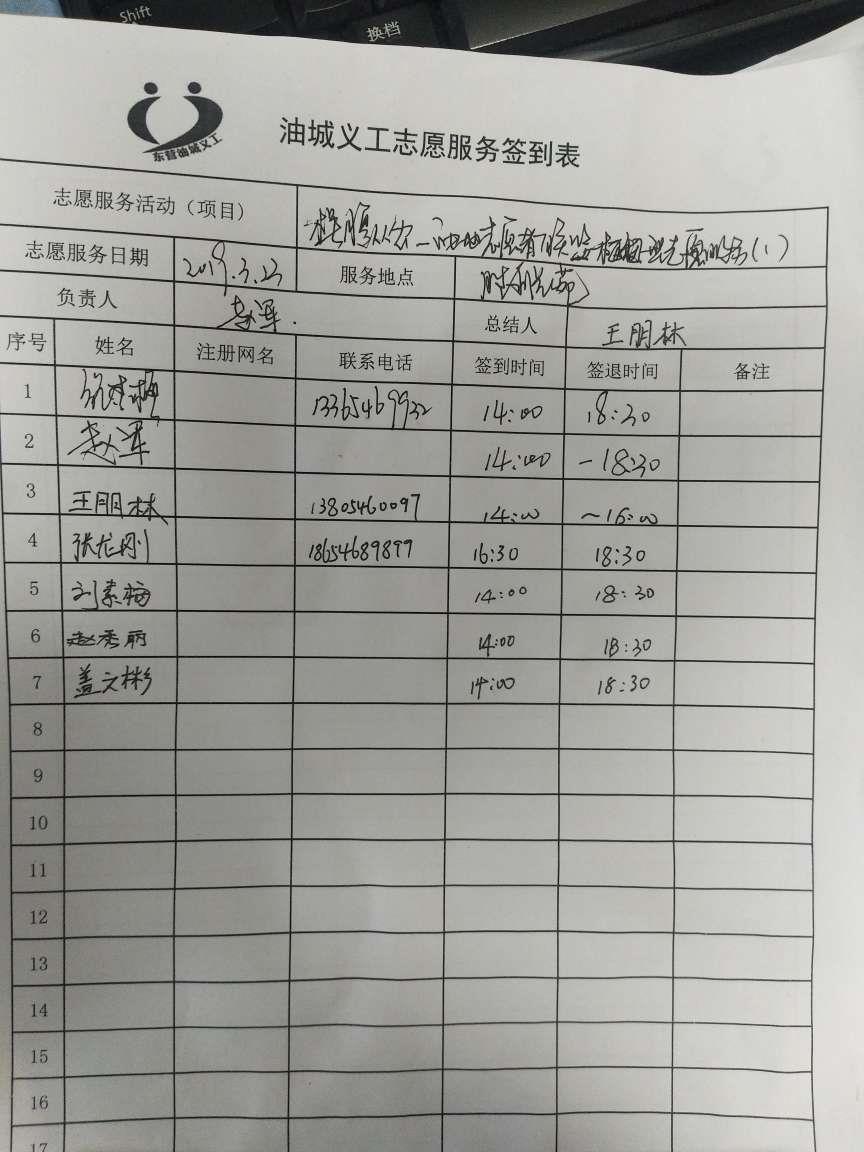 Shift
换档
东营油城义工
油城义工志愿服务签到表
志愿服务活动（项目）
志愿服务日期 2019.3.23 服务地点
负责人 赵军. 总结人 王朋林
序号 姓名 注册网名 联系电话 签到时间 签退时间 备注
1 13365469932 14:00 18:30
2 赵军 14:00 -18:30
3 王朋林 13805460097 14:00 ~16:00
4 张龙刚 18654689899 16:30 18:30
5 刘素梅 14:00 18:30
6 赵秀丽 14:00 18:30
7 盖文彬 14:00 18:30
8
9
10
11
12
13
14
15
16
17